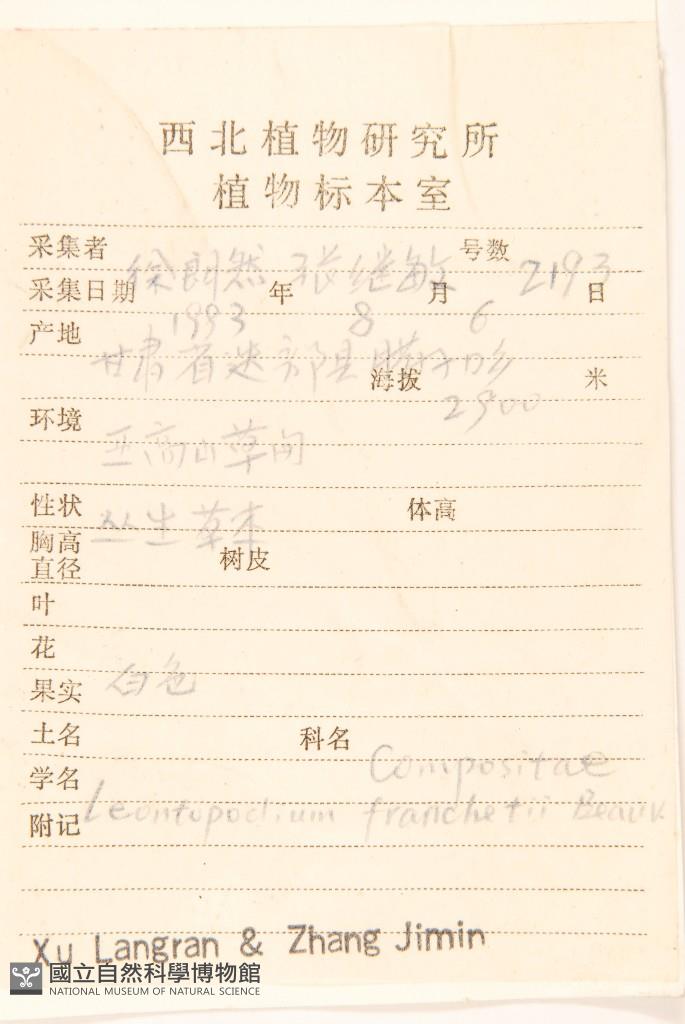 西北植物研究所
植物标本室
采集者 徐朗然 张继敏 号数 2193
采集日期 1993 年 8 月 6 日
产地 甘肃省迭部县腊子口乡
海拔 2900 米
环境 亚高山草甸
性状 丛生草本 体高
胸高直径 树皮
叶
花 白色
果实
土名 科名 Compositae
学名 Leontopodium franchetii Beauv
附记
Xu Langran & Zhang Jimin
國立自然科學博物館
NATIONAL MUSEUM OF NATURAL SCIENCE